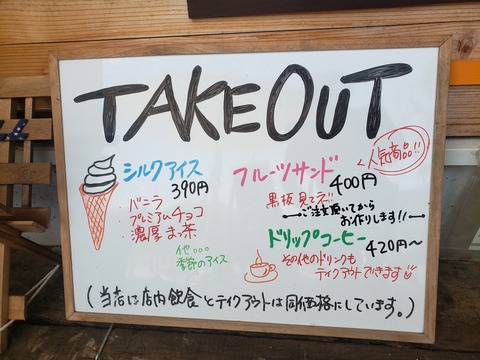 TAKEOUT
シルクアイス
390円
・バニラ
・プレミアムチョコ
・濃厚まっ茶
他○○○
季節のアイス
人気商品!!
フルーツサンド
400円
黒板見て下さい!!
ご注文頂いてから
お作りします!!
ドリップコーヒー
420円〜
その他のドリンクも
テイクアウトできます
(当店は店内飲食とテイクアウトは同価格にしています。)